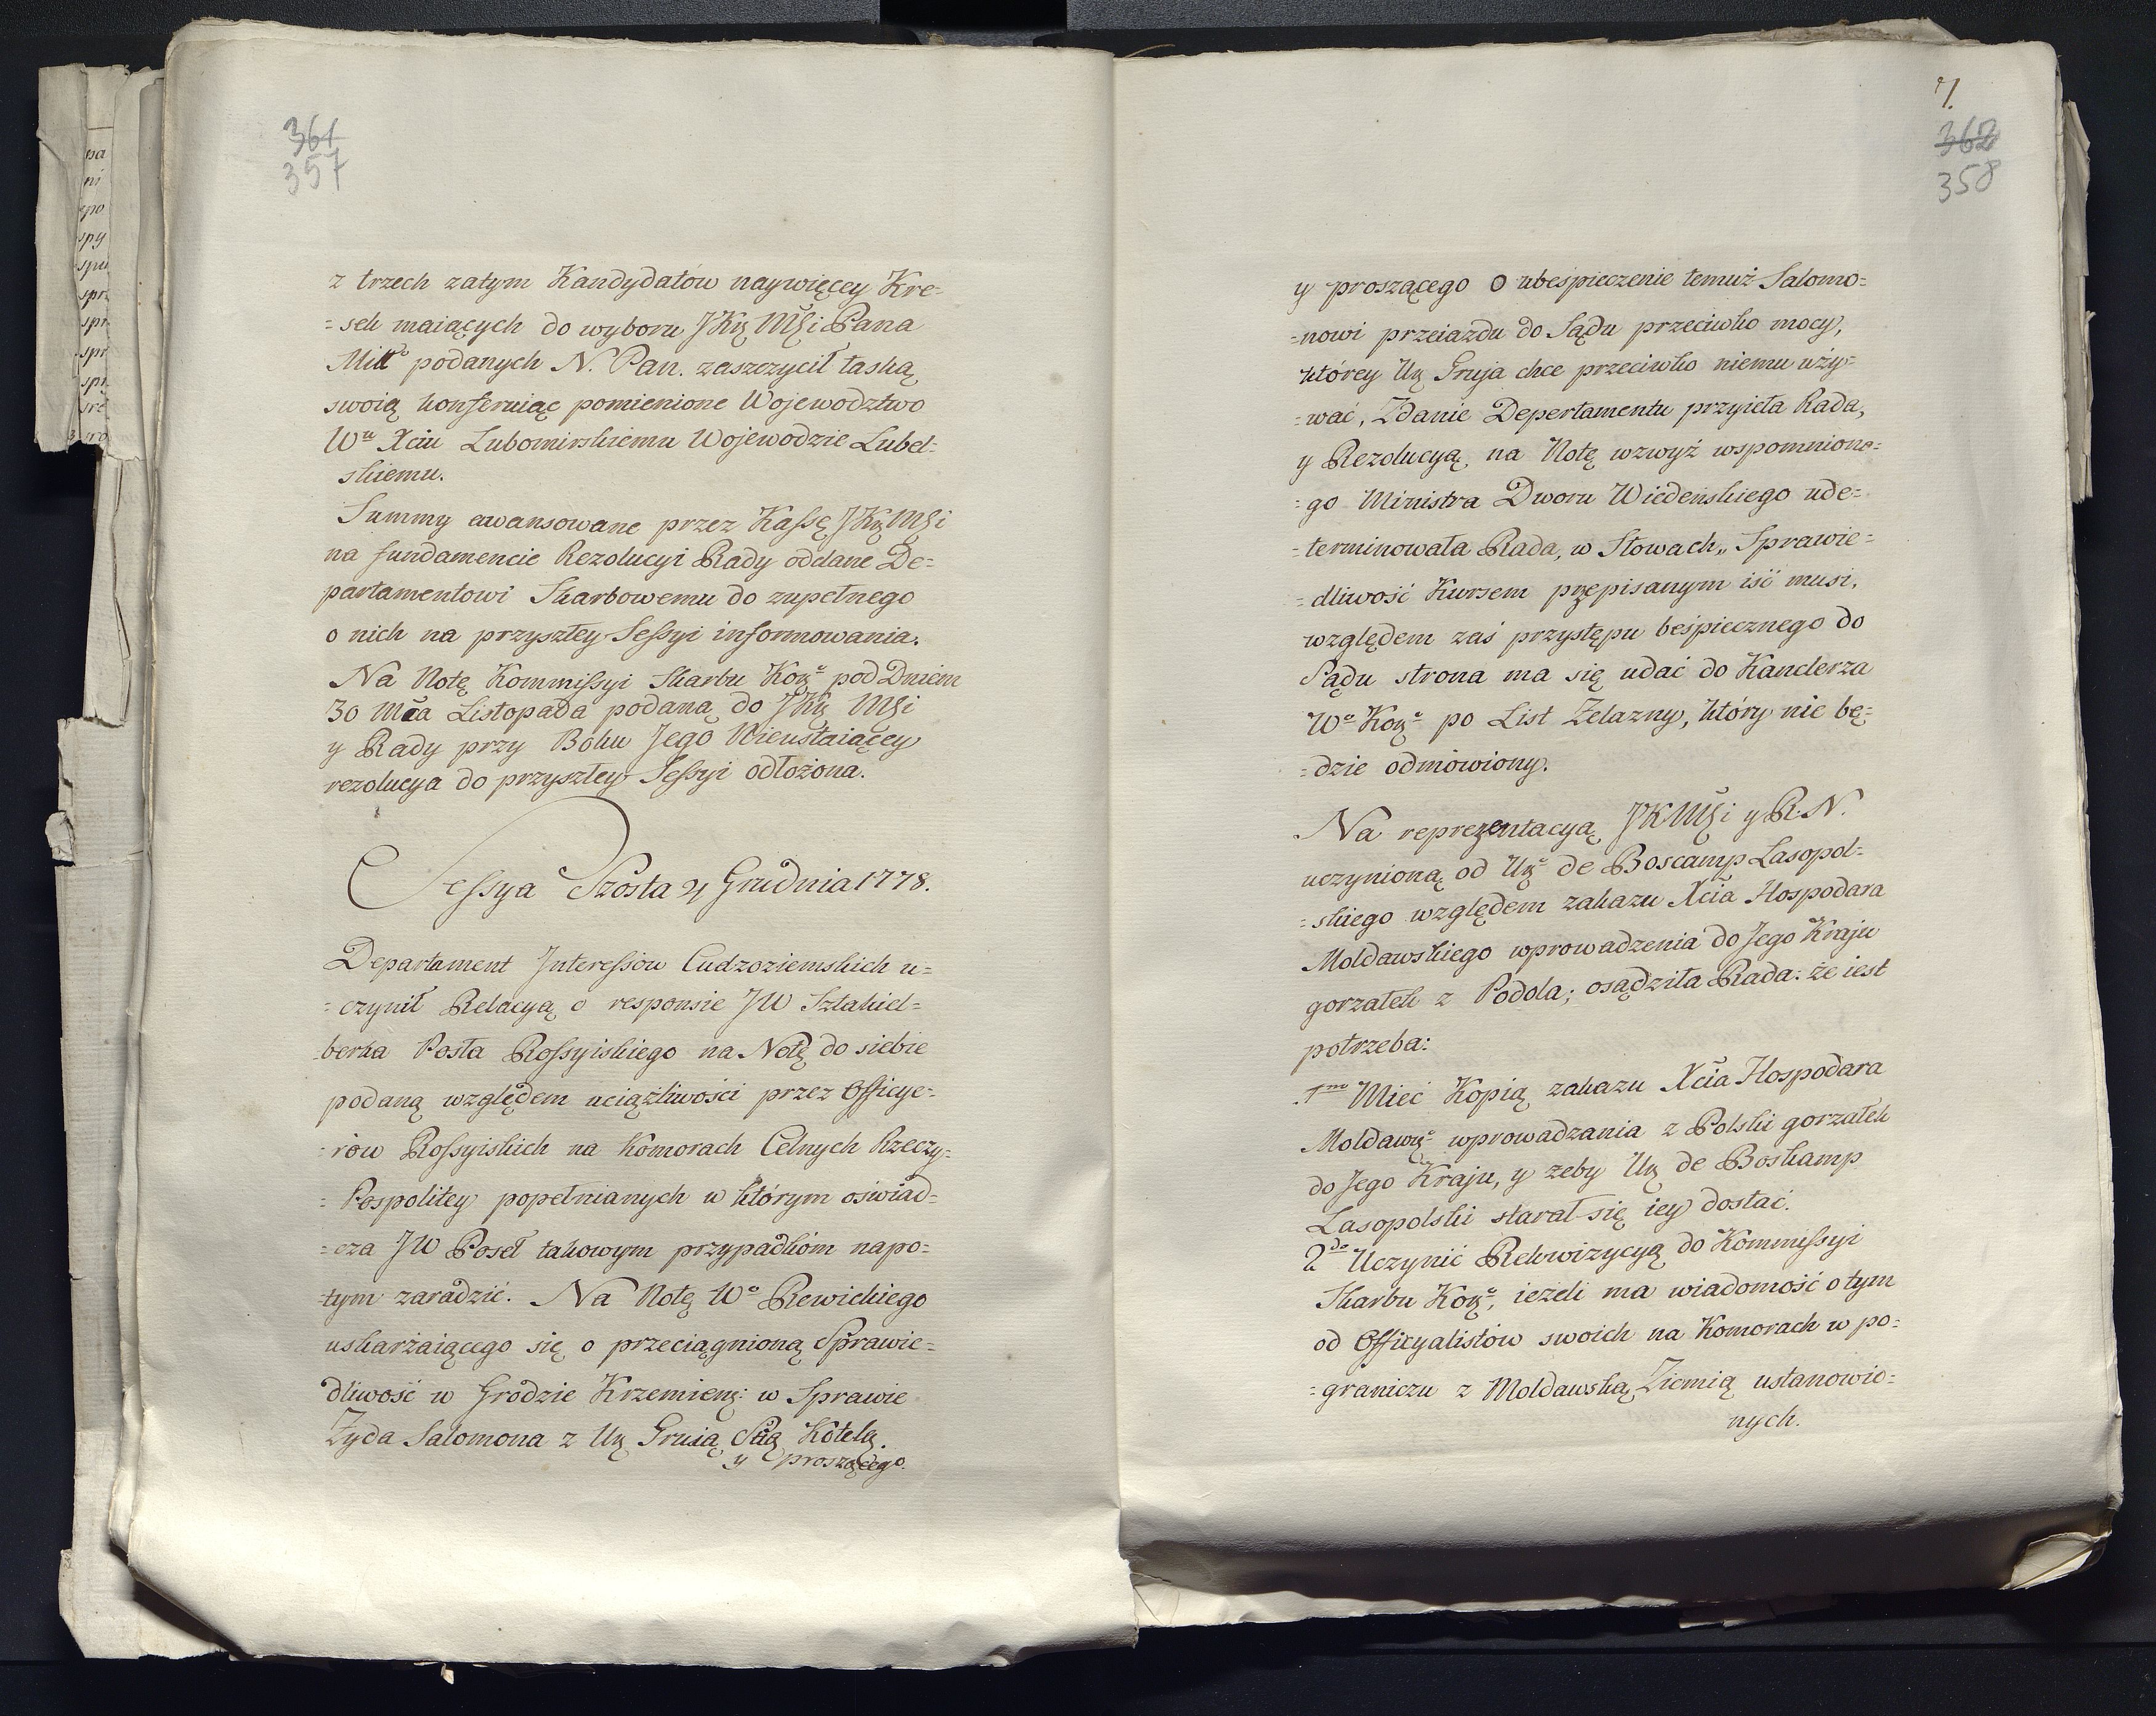 361
357
z trzech zatym Kandydatow naywięcey Kre=
=sek maiących do wyboru JKrę Mści Pana
Miłł° podanych N. Pan. zaszczycił łaską
swoią konferuiąc pomienione Wojewodztwo
Wu Xciu Lubomirskiemu Wojewodzie Lubel=
skiemu.
Summy awansowane przez Kassę JKrę Mści
na fundamencie Rezolucyi Rady oddane De=
partamentowi Skarbowemu do zupełnego
o nich na przyszłey Sessyi informowania.
Na Notę Kommissyi Skarbu Korę pod Dniem
30 Mca Listopada podaną do JKrę Mści
y Rady przy Boku Jego Nieustaiącey
rezolucya do przyszłey Sessyi odłożona.
Sessya Szósta 4 Grudnia 1778.
Departament Interessow Cudzoziemskich u=
=czynił Relacyą o responsie JW Sztakiel=
berka Posła Rossyiskiego na Notę do siebie
podaną względem uciążliwości przez Officye=
=row Rossyiskich na Komorach Celnych Rzeczy=
=Pospolitey popełnianych w którym oświad=
=cza JW Poseł takowym przypadkóm napo=
tym zaradzić. Na Notę W° Rewickiego
uskarżaiącego się o przeciągnioną Sprawie=
dliwość w Grodzie Krzemienę: w Sprawie
Żyda Salomona z Urę Grusią Sścią Kotelę.
y proszącego.
7.
362
358
y proszącego o ubespieczenie temuż Salomo=
=nowi przeiazdu do Sądu przeciwko mocy,
którey Urę Gruja chce przeciwko niemu uży=
=wać, Zdanie Depertamentu przyieła Rada,
y Rezolucyą na Notę wzwyż wspomnione=
=go Ministra Dworu Wiedeńskiego ude=
=terminowała Rada, w Słowach „ Sprawie=
=dliwość Kursem przepisanym iść musi,
względem zaś przystępu beśpiecznego do
Sądu strona ma się udać do Kanclerza
W° Korę po List Zelazny, który nie bę=
=dzie odmowiony.
Na reprezentacyą JKMści y R. N.
uczynioną od Urę de Boscamp Lasopol=
=skiego względem zakazu Xcia Hospodara
Moldawskiego wprowadzenia do Jego Kraju
gorzałek z Podola; osądziła Rada: że iest
potrzeba:
1mo Mieć Kopią zakazu Xcia Hospodara
Moldawę wprowadzania z Polski gorzałek
do Jego Kraju, y zeby Urę de Boskamp
Lasopolski starał się iey dostać.
2do Uczynić Rekwizycyą do Kommissyi
Skarbu Korę, ieżeli ma wiadomość o tym
od Officyalistów swoich na Komorach w po=
=graniczu z Moldawską Ziemią ustanowio=
nych.